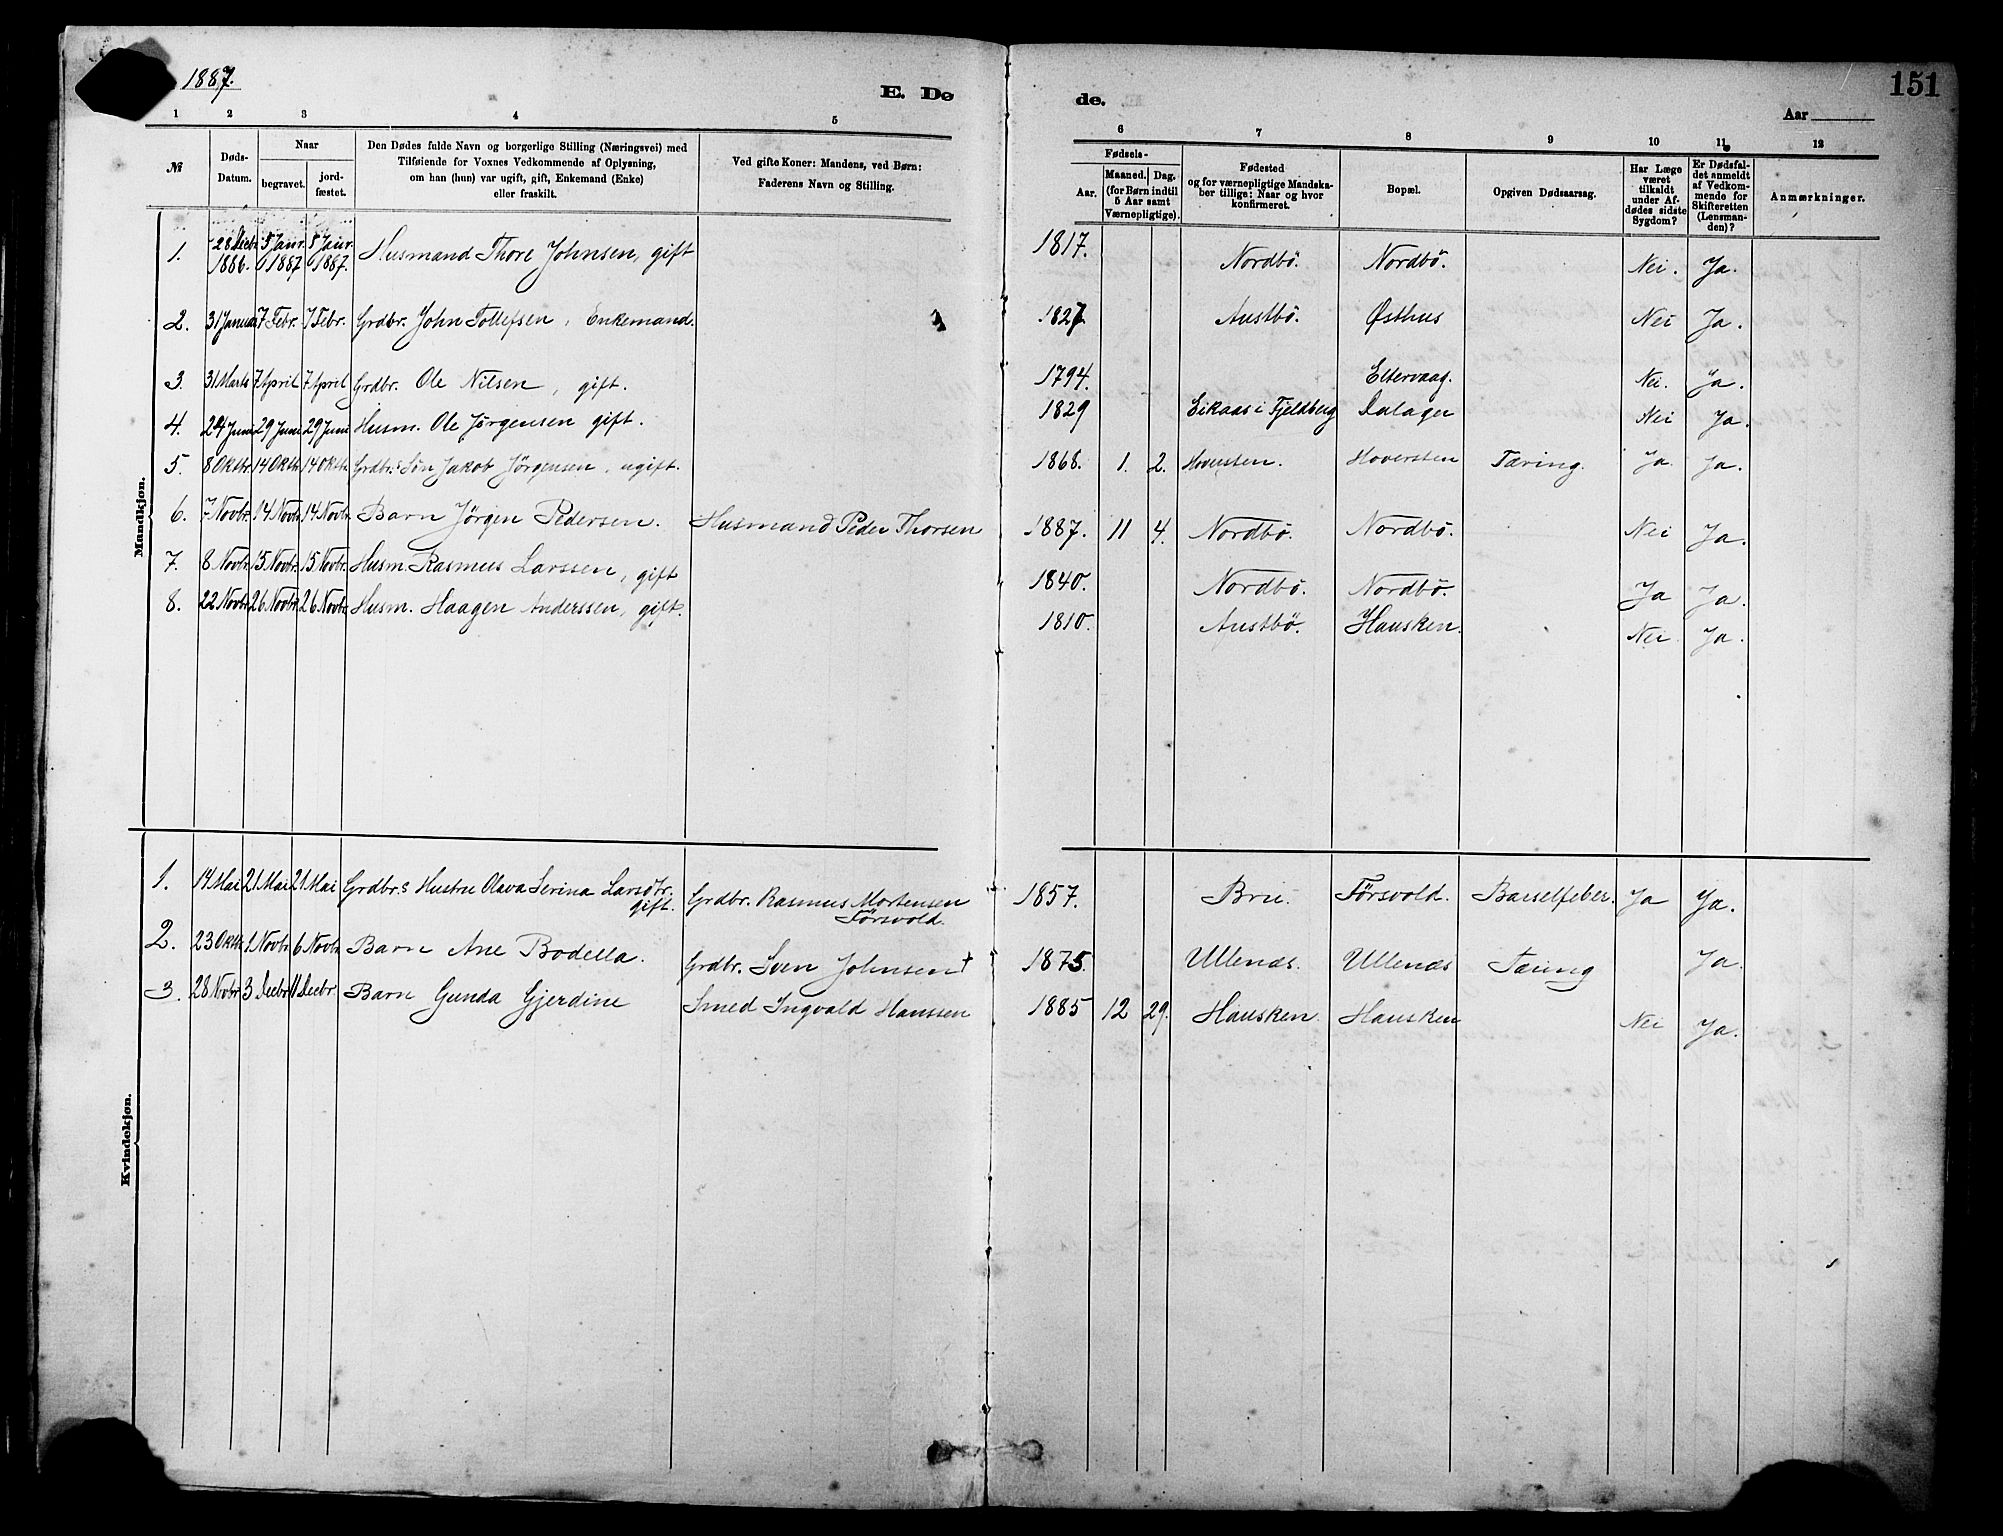 1887.
E. Dø
de.
151
Aar
1 2 3 4 5 6 7 8 9 10 11 12
№
Døds-
Datum.
Naar
begravet.
jord-
fæstet.
Den Dødes fulde Navn og borgerlige Stilling (Næringsvei) med
Tilføiende for Voxnes Vedkommende af Oplysning,
om han (hun) var ugift, gift, Enkemand (Enke)
eller fraskilt.
Ved gifte Koner: Mandens, ved Børn:
Faderens Navn og Stilling.
Fødsels-
Aar.
Maaned.
Dag.
(for Børn indtil
5 Aar samt
Værnepligtige).
Fødested
og for værnepligtige Mandska-
ber tillige: Naar og hvor
konfirmeret.
Bopæl.
Opgiven Dødsaarsag.
Har Læge
været
tilkaldt
under Af-
dødes sidste
Sygdom?
Er Dødsfal-
det anmeldt
af Vedkom-
mende for
Skifteretten
(Lensman-
den)?
Anmærkninger.
Mandkjøn.
1. 28 Decbr. 1886. 5 Janr. 1887 5 Janr. 1887. Husmand Thore Johnsen, gift 1817. Nordbö. Nordbö. Nei. Ja.
2. 31 Januar 7 Febr. 7 Febr. Grdbr. John Tollefsen, Enkemand. 1827 Austbö. Østhus Nei Ja.
3. 31 Marts 7 April 7 April Grdbr. Ole Nilsen, gift. 1794. Eltervaag. Nei. Ja.
4. 24 Juni 29 Juni 29 Juni Husm. Ole Jörgensen gift. 1829 Eikaas i Fjeldberg Dalager Nei Ja.
5. 8 Oktbr. 14 Oktb. 14 Oktb. Grdbr.s Sön Jakob Jörgensen, ugift. 1868. 1. 2. Hoversten. Hoversten Tæring. Ja Ja.
6. 7 Novbr. 14 Novb. 14 Novbr. Barn Jörgen Pedersen. Husmand Peder Thorsen 1887. 11 4. Nordbö. Nordbö. Nei Ja.
7. 8 Novbr. 15 Novbr. 15 Novbr. Husm Rasmus Larssen, gift 1840. Nordbö. Nordbö. Ja Ja.
8. 22 Novbr. 26 Novbr. 26 Novbr. Husm. Haagen Anderssen, gift. 1810. Austbö. Hausken. Nei. Ja.
Kvindekjøn.
1. 14 Mai 21 Mai 21 Mai Grdbr.s Hustru Olava Serina Larsdtr. gift. Grdbr. Rasmus Mortensen Försvold. 1857. Bru Försvold. Barselfeber. Ja Ja.
2. 23 Oktb. 1 Novbr. 6 Novbr. Barn Ane Bodella. Grdbr. Sven Johnsen † 1875. Ullenæs. Ullenæs Tæring Ja.
3. 28 Novbr. 3 Decbr. 11 Decbr. Barn Gunda Gjerdine Smed Ingvald Hanssen 1885 12 29. Hausken. Hausken Nei Ja.